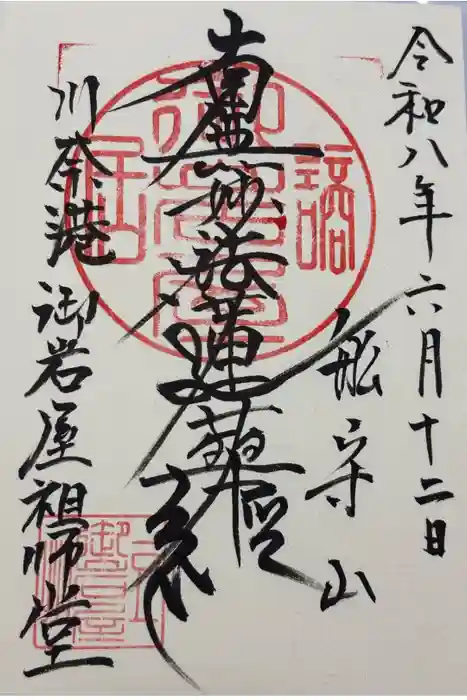 令和八年六月十二日
船守山
南無妙法蓮華経
川奈港 御岩屋祖師堂